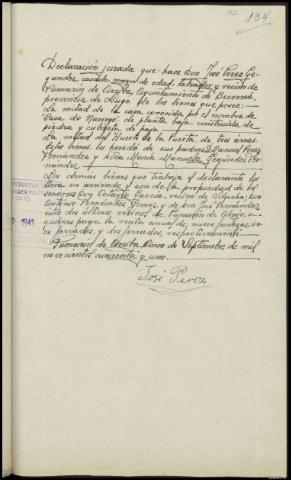 134
Declaración jurada que hace Don José Perez Ge-
gundez, casado, mayor de edad, labrador y vecino de
Fumarin de Arriba, Ayuntamiento de Becerreá,
provincia de Lugo de los bienes que posee:
La mitad de la casa conocida por el nombre de
Casa do de planta baja construida de
piedra y cubierta de paja
La mitad del Huerto de la Puerta de tres áreas.
Estos bienes los heredó de sus padres Manuel Perez
Fernández y Doña María Manuela Gegundez Fer-
nandez.
Los demás bienes que trabaja el declarante los
lleva en arriendo y son de la propiedad de los
señores Don García, vecino de Don
Antonio Fernández Gomez y de Don José Fernández
estos dos últimos vecinos de Fumarin de a
quienes paga la renta anual de nueve fanegas,
ferrados, y dos ferrados, respectivamente.
Fumarin de Arriba, Cinco de Septiembre de mil
novecientos cuarenta y uno.
José Perez
1941